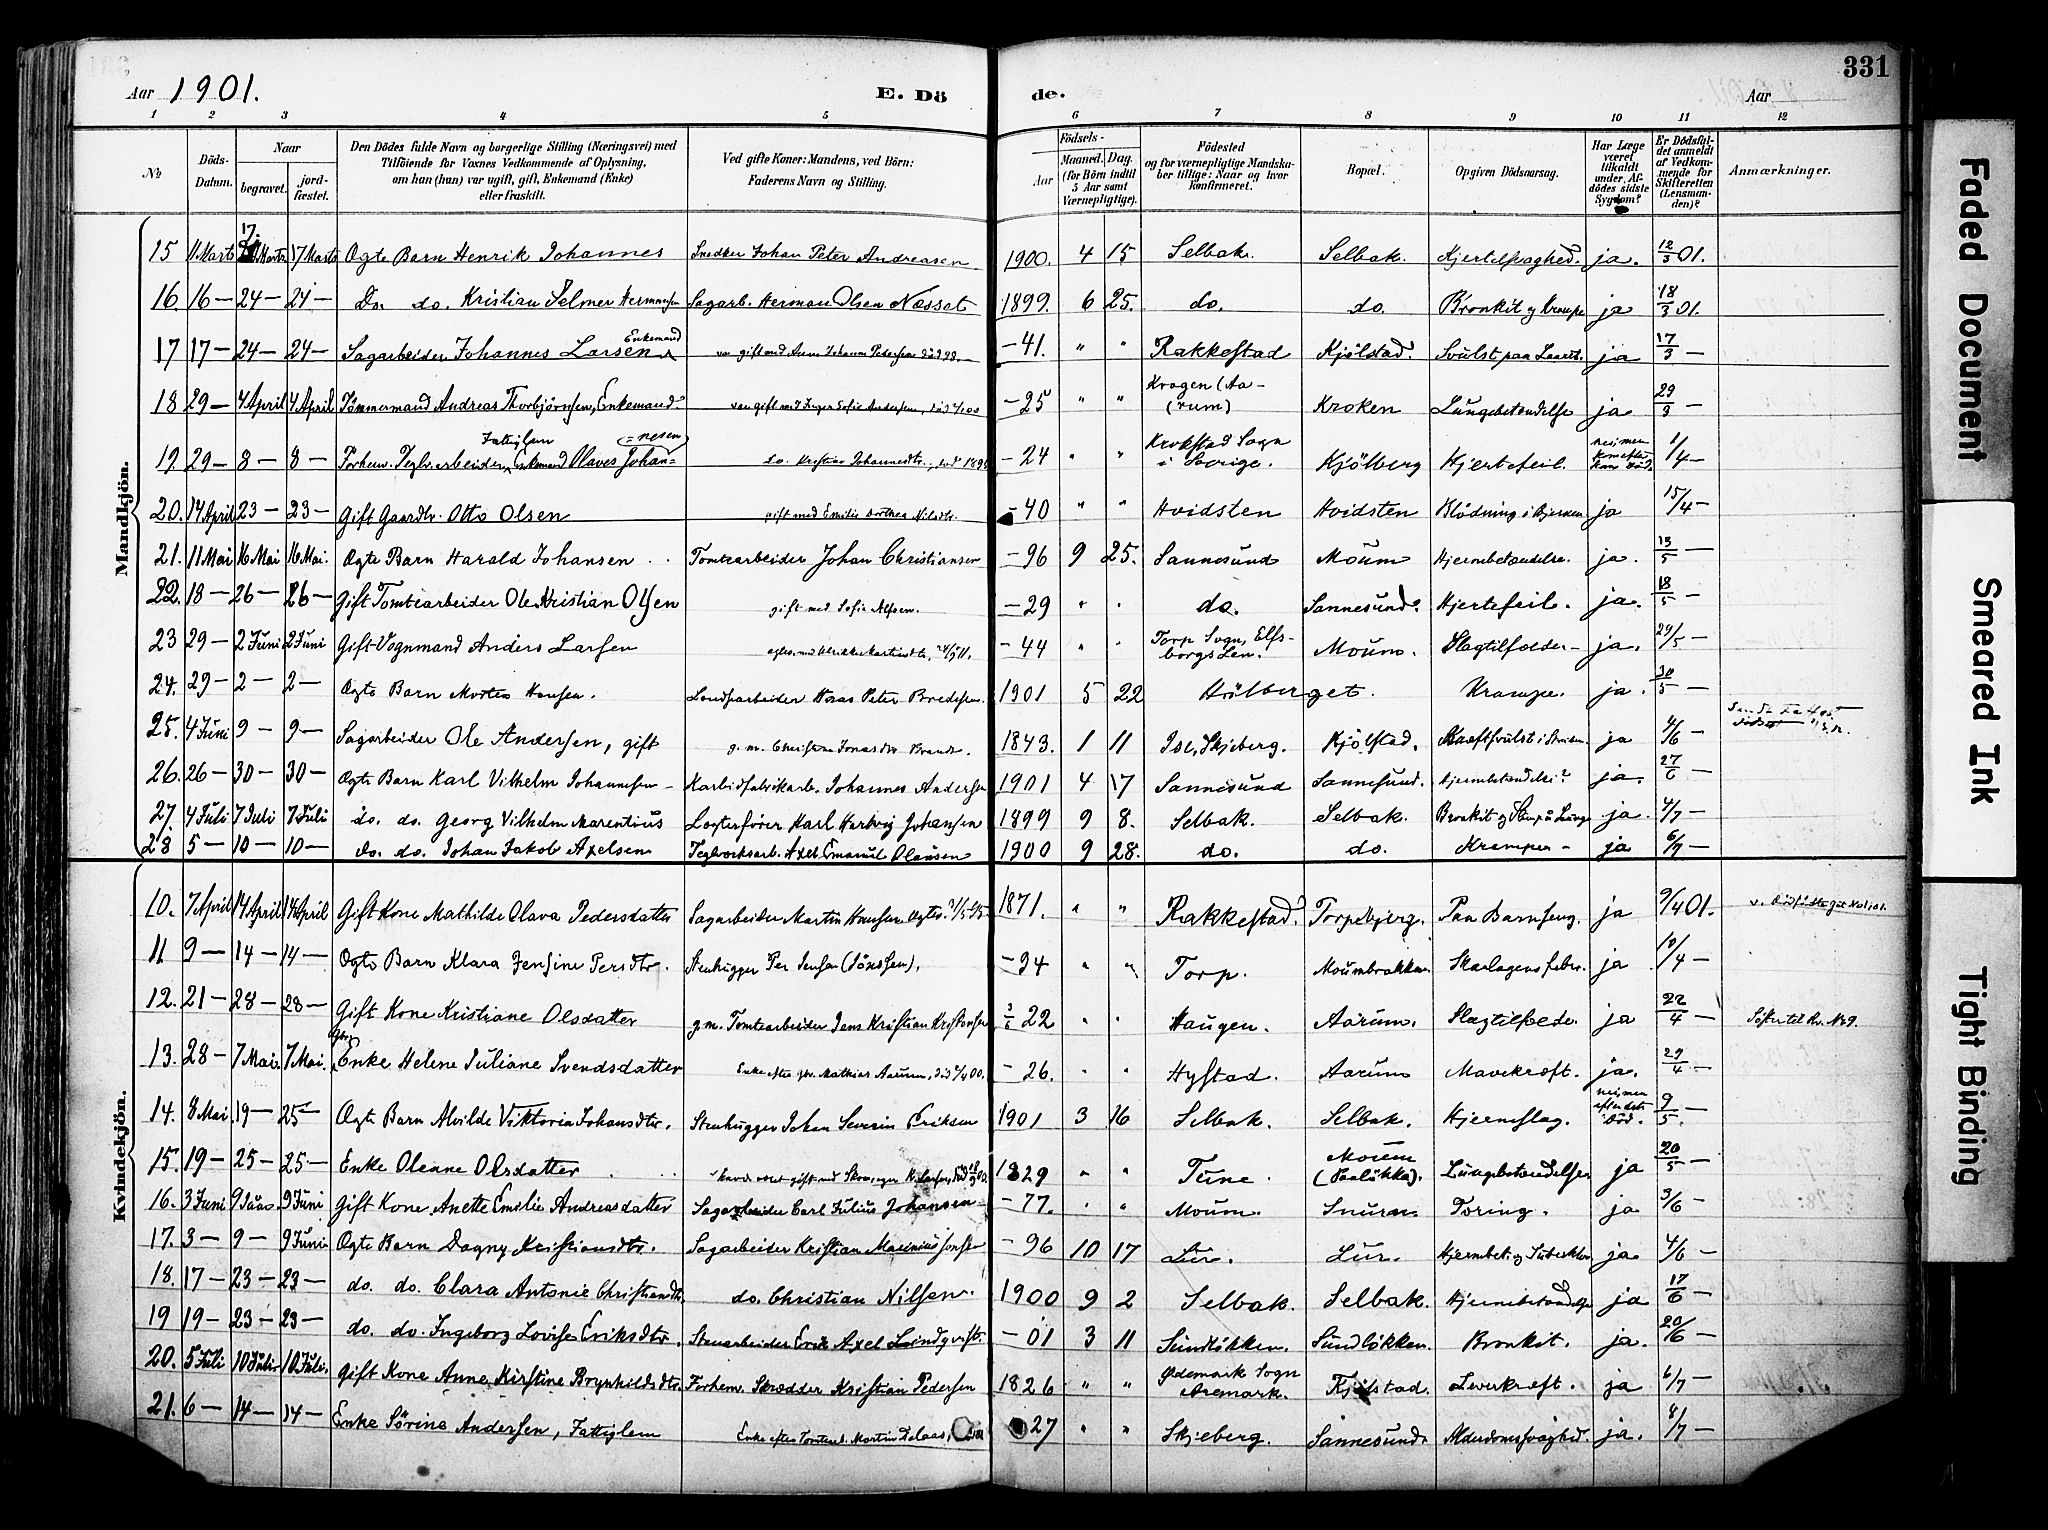 331
Aar 1901.
E. Dö de.
Aar
1 2 3 4 5 6 7 8 9 10 11 12
No
Döds-Datum.
Naar
begravet.
jord-fæstet.
Den Dödes fulde Navn og borgerlige Stilling (Næringsvei) med
Tilföiende for Voxnes Vedkommende af Oplysning,
om han (hun) var ugift, gift, Enkemand (Enke)
eller fraskilt.
Ved gifte Koner: Mandens, ved Börn:
Faderens Navn og Stilling.
Födsels-
Aar
Maaned. Dag.
(for Börn indtil
5 Aar samt
Værnepligtige).
Födested
og for værnepligtige Mandska-
ber tillige: Naar og hvor
konfirmeret.
Bopæl.
Opgiven Dödsaarsag.
Har Læge
været
tilkaldt
under Af-
dödes sidste
Sygdom?
Er Dödsfal-
det anmeldt
af Vedkom-
mende for
Skifteretten
(Lensman-
den)?
Anmærkninger.
Mandkjön.
15 11 Marts 17 Marts 17 Marts Ægte Barn Henrik Johannes Snedker Johan Peter Andreasen 1900. 4 15 Selbak. Selbak. ja. 12/3 01.
16. 16 — 24 — 24 — Do. do. Kristian Selmer Hermansen Sagarb. Herman Olsen Næsset 1899. 6 25. do. do. Bronkit og Krampe ja 18/3 01.
17 17 — 24 — 24 — Sagarbeider Johannes Larsen Enkemand — 41. " " Rakkestad Kjölstad. Svulst paa ja 17/3 —
18 29 — 4 April 4 April Tömmermand Andreas Thorbjörnsen, Enkemand. — 25 " " Kragen (Aa-
rum) Kroken Lungebetændelse ja 29/3 —
19 29 — 8 — 8 — Forhenv. Teglv.arbeider, Enkemand Olaves Johan=
=nesen Fattiglem — 24 " " Krokstad Sogn
i Sverige. Kjölberg Hjertefeil. 1/4 —
20. 14 April 23 — 23 — Gift Gaardbr. Otto Olsen gift med Emilie Dorthea Nilsdtr. — 40 " " Hvidsten Hvidsten Blödning i Hjernen ja 15/4 —
21. 11 Mai 16 Mai 16 Mai. Ægte Barn Harald Johansen Tomtearbeider Johan Christiansen — 96 9 25. Sannesund Moum Hjernebetændelse. ja. 13/5 —
22. 18 — 26 — 26 — Gift Tomtearbeider Ole Kristian Olsen gift med Sofie Alfsen. — 29 " " do. Sannesund. Hjertefeil. ja. 18/5 —
23 29 — 2 Juni 2 Juni Gift Vognmand Anders Larsen — 44 " " Torp Sogn, Elfs-
borgs Len. Moum. Slagtilfælde — ja. 29/5 —
24. 29 — 2 — 2 — Ægte Barn Morten Hansen. Landsarbeider Hans Peter Bredesen. 1901 5 22 Hölberget. Krampe. ja. 30/5 —
25. 4 Juni 9 — 9 — Sagarbeider Ole Andersen, gift 1843. 1 11 Ise, Skjeberg. Kjölstad. ja 4/6 —
26. 26 — 30 — 30 — Ægte Barn Karl Vilhelm Johannesen — Karbidfabrikarb. Johannes Andersen 1901 4 17 Sannesund Sannesund. Hjernebetændelse? ja. 27/6 —
27. 4 Juli 7 Juli 7 Juli do. do. Georg Vilhelm Marentius Karl Hartvig Johansen 1899 9 8. Selbak. Selbak. ja. 4/7 —
28 5 — 10 — 10 — do. do. Johan Jakob Axelsen Teglverksarb. Axel Emanuel Olausen 1900 9 28. do. do. Krampe — ja 6/7 —
Kvindekjön.
10. 7 April 14 April 14 April Gift Kone Mathilde Olava Pedersdatter Sagarbeider Martin Hansen 1871. " " Rakkestad. Torpebjerg. Paa Barnseng. ja 9/4 01.
11 9 — 14 — 14 — Ægte Barn Klara Jensine Persdtr. Stenhugger Per Jensen (Jönssen). — 94 " " Torp. Moumbrækken Skarlagensfeber. ja 10/4 —
12. 21 — 28 — 28 — Gift Kone Kristiane Olsdatter g.m. Tomtearbeider Jens Kristian Kristensen 3/6 22 " " Haugen. Aarum. Slagtilfælde. ja 22/4 —
13. 28 — 7 Mai. 7 Mai. Enke Helene Juliane Svendsdatter — 26. " " Hystad. Aarum Mavekræft. ja. 29/4 —
14. 8 Mai. 19 — 25 — Ægte Barn Alvilde Viktoria Johansdtr. Stenhugger Johan Severin Eriksen 1901 3 16 Selbak. Selbak. Hjerneslag. 9/5. —
15. 19 — 25 — 25 — Enke Oleane Olsdatter 1829 " " Tune. Moum
(Paalökka). Lungebetændelse ja 20/5 —
16. 3 Juni 9 Juni 9 Juni Gift Kone Anette Emilie Andreasdatter Sagarbeider Carl Julius Johansen — — 77. " " Moum. Snuren Tæring. ja 3/6 —
17. 3 — 9 — 9 Juni Ægte Barn Dagny Kristiansdtr. Sagarbeider Kristian Marinius Jonsen — 96 10 17 Lur. Lur. ja 4/6 —
18. 17 — 23 — 23 — do. do. Clara Antonie Christiansdtr. do. Christian Nilsen. 1900 9 2 Selbak. Selbak. Hjernebetændelse ja 17/6 —
19 19 — 23 — 23 — do. do. Ingeborg Lovise Eriksdtr. Stenarbeider Erik Axel Lindqvist — 01 3 11 Sundlökken. Sundlökken. Bronkit. ja. 20/6 —
20. 5 Juli 10 Juli 10 Juli. Gift Kone Anne Kirstine Brynhildsdtr. Forhenv. Skrædder Kristian Pedersen 1826 " " Ödemark Sogn
Aremark. Kjölstad. Leverkræft. ja 6/7 —
21. 6 — 14 — 14 — Enke Sörine Andersen, Fattiglem 27 " " Skjeberg. Sannesund. Alderdomssvaghed. ja. 8/7 —
Faded Document
Smeared Ink
Tight Binding